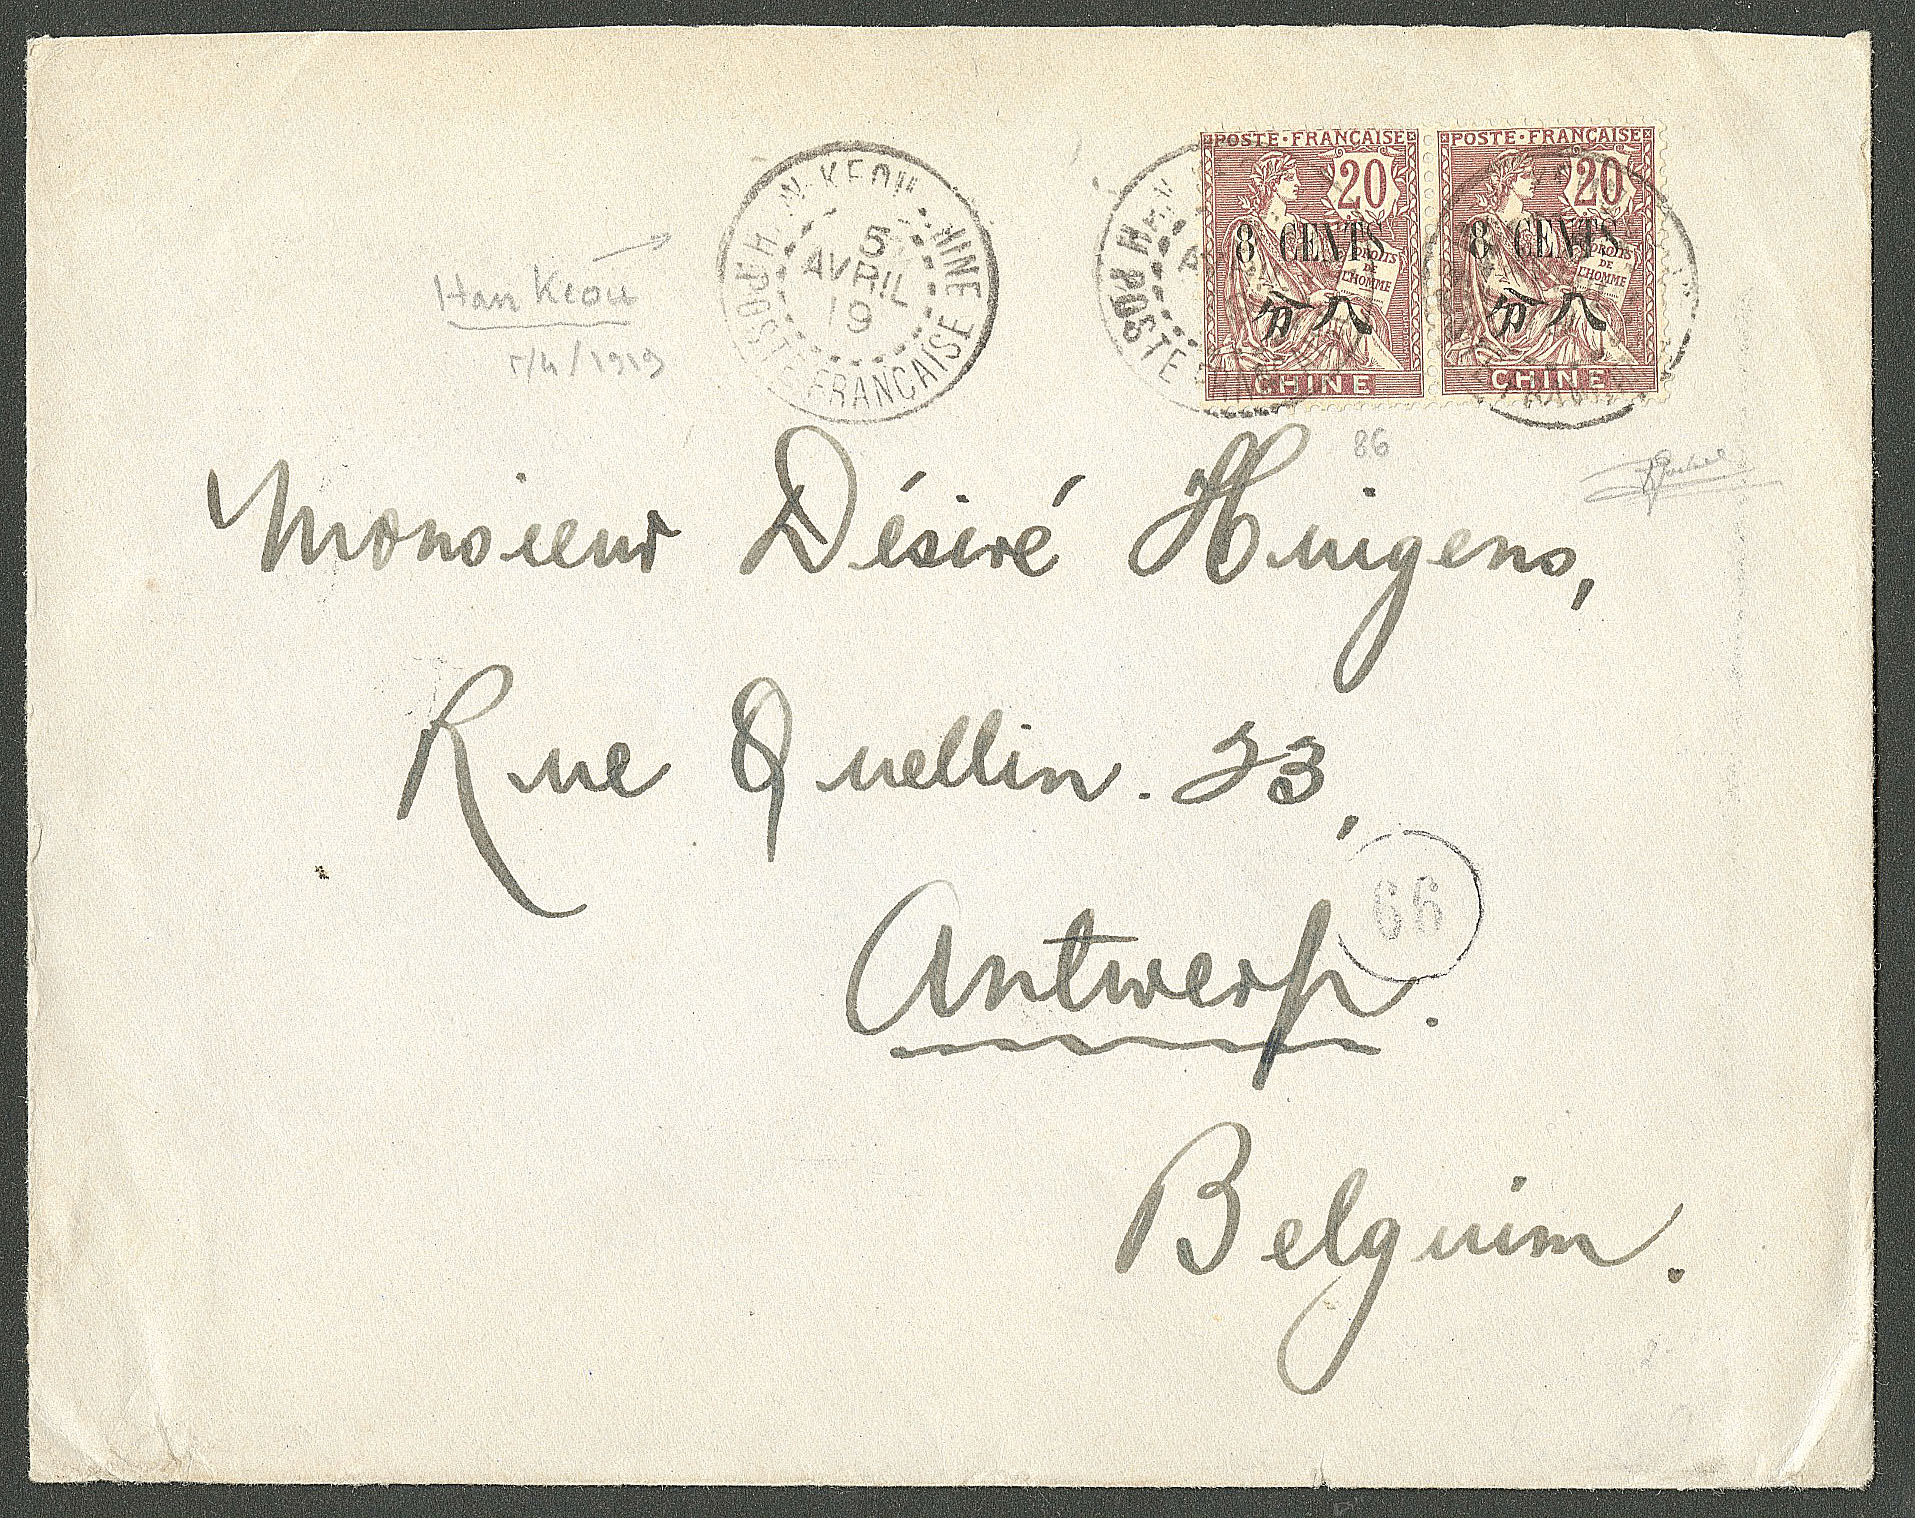 HAN-KEOU CHINE
5
AVRIL
19
POSTE FRANCAISE
Han Keou
5/4/1919
POSTE·FRANÇAISE
20
8 CENTS
DROITS
DE
L'HOMME
分八
CHINE
POSTE·FRANÇAISE
20
8 CENTS
DROITS
DE
L'HOMME
分八
CHINE
HAN
POSTE
86
Monsieur Désiré Huigens,
Rue Quellin. 33,
66
Antwerp.
Belguim.